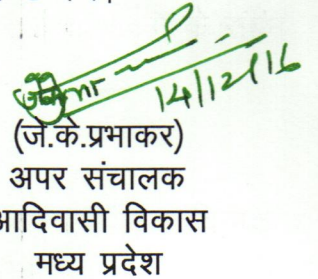 14/12/16
(जे.के.प्रभाकर)
अपर संचालक
आदिवासी विकास
मध्य प्रदेश